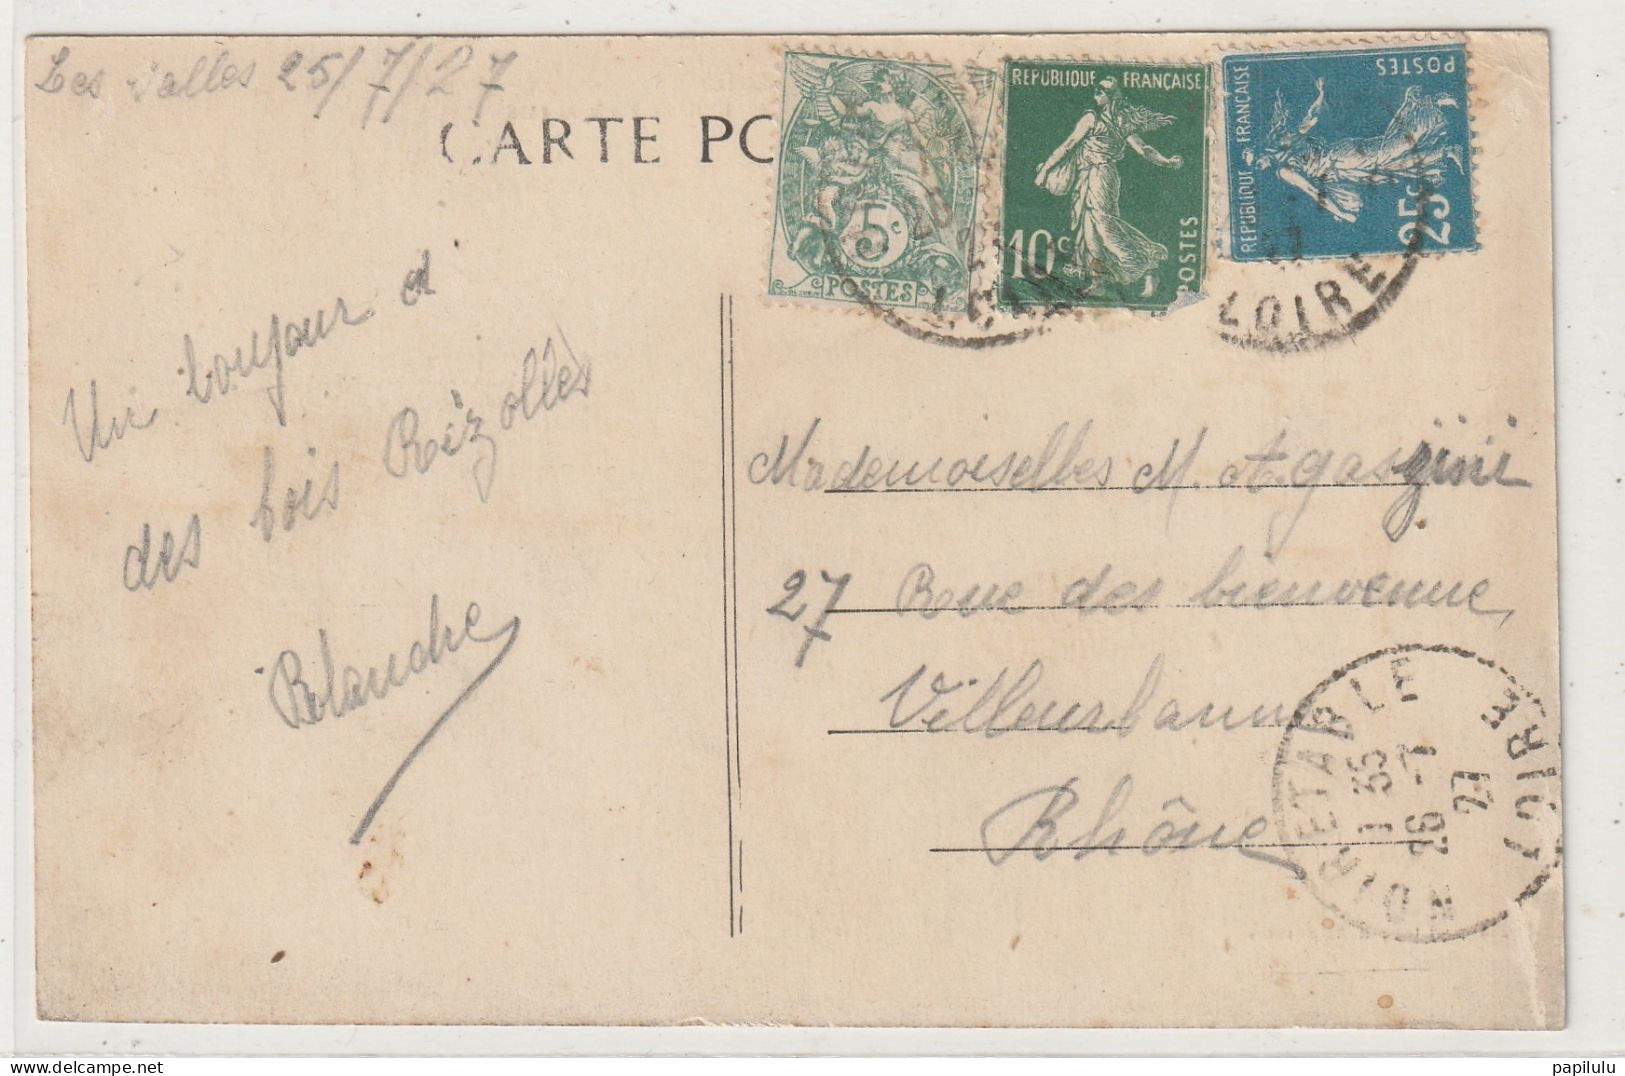 Les Salles 25/7/27
CARTE PO
5c
POSTES
REPUBLIQUE FRANÇAISE
10c
POSTES
REPUBLIQUE FRANÇAISE
25c
POSTES
LOIRE
LOIRE
Un toujour d
des bois Rézolles
Blandhe
Mademoiselles M. A. gasgini
27 Rue des bienvenue,
Villeurbanne
Rhône
NOIRETABLE
1 35
26 - 7
27
LOIRE
papilulu